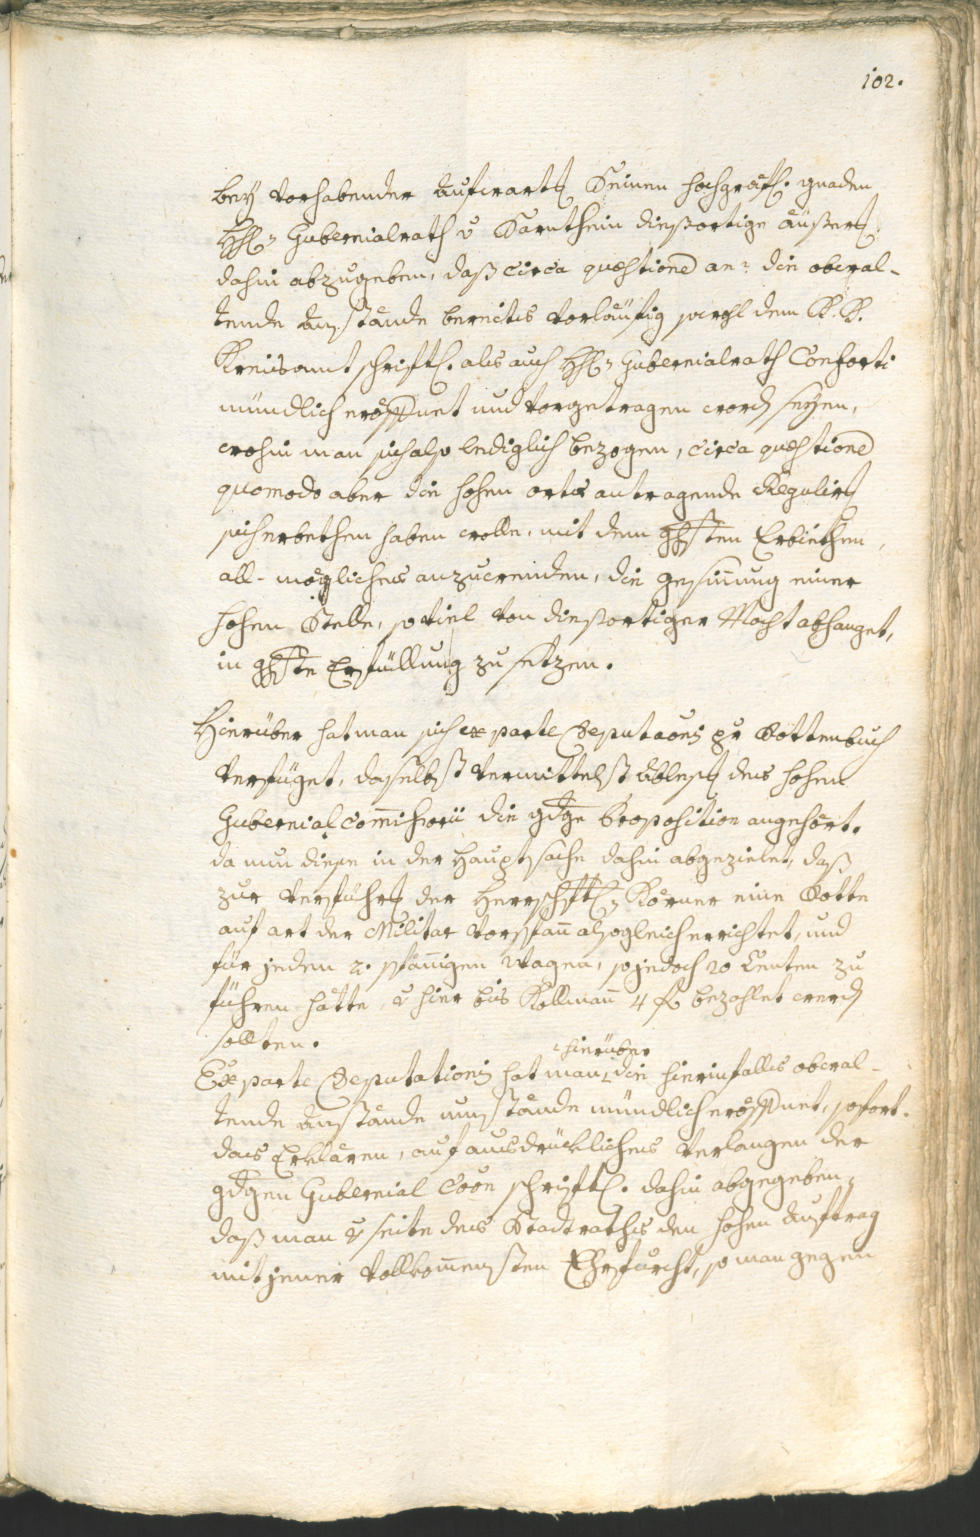 102.
bey vorhabender aufwart Seiner hochgräfl. gnaden
H. Gubernialrath v Sarnthein dießortige äußer
dahin abzugeben, daß circa quæstione an? die obwal-
tende anstände bereits vorläufig sowohl dem K. K.
Kreisamt schriftl. als auch H. Gubernialrath Conforti
mündlich eröffnet und vorgetragen word seyen,
wohin man sich also lediglich bezogen, circa quæstione
quomodo aber die hohen orts antragende Regulir
sich erbethen haben wolle, mit dem ghsten Erbiethen,
all-mögliches anzuwenden, die gesinnung einer
hohen Stelle, so viel von dießortiger Macht abhanget,
in ghste Erfüllung zu setzen.
Hierüber hat man sich ex parte Deputaonis zu Rottenbuch
verfüget, daselbst vermittelst ables des hohen
Gubernial Commissorii die gdge Proposition angehört.
da nun diese in der Hauptsache dahin abgezielet, daß
zur verführ der Herrschftl. Körner eine Rotte
auf art der Militar Vorspann alsogleich errichtet, und
für jeden 2. spännigen Wagen, so jedoch 20 Centen zu
führen hätte v hier bis Kollmann 4 f bezahlet werd
sollten.
Ex parte Deputationis hat man hierüber die hierinfalls obwal-
tende anstände umstände mündlich eröffnet, sofort
das Erklären, auf ausdrückliches Verlangen der
gdgen Gubernial Coon schriftl. dahin abgegeben,
daß man v seite des Stadtraths den hohen auftrag
mit jener vollkommensten Ehrfurcht, so man gegen